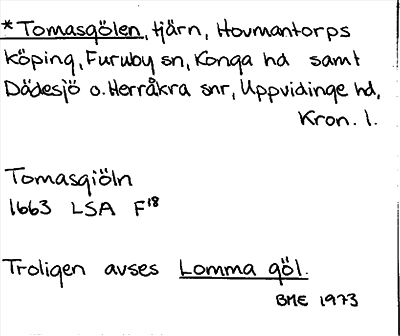 *Tomasgölen, tjärn, Hovmantorps
köping, Furuby sn, Konga hd samt
Dädesjö o. Herråkra snr, Uppvidinge hd,
Kron. l.
Tomasgiöln
1663 LSA F18
Troligen avses Lomma göl.
BME 1973